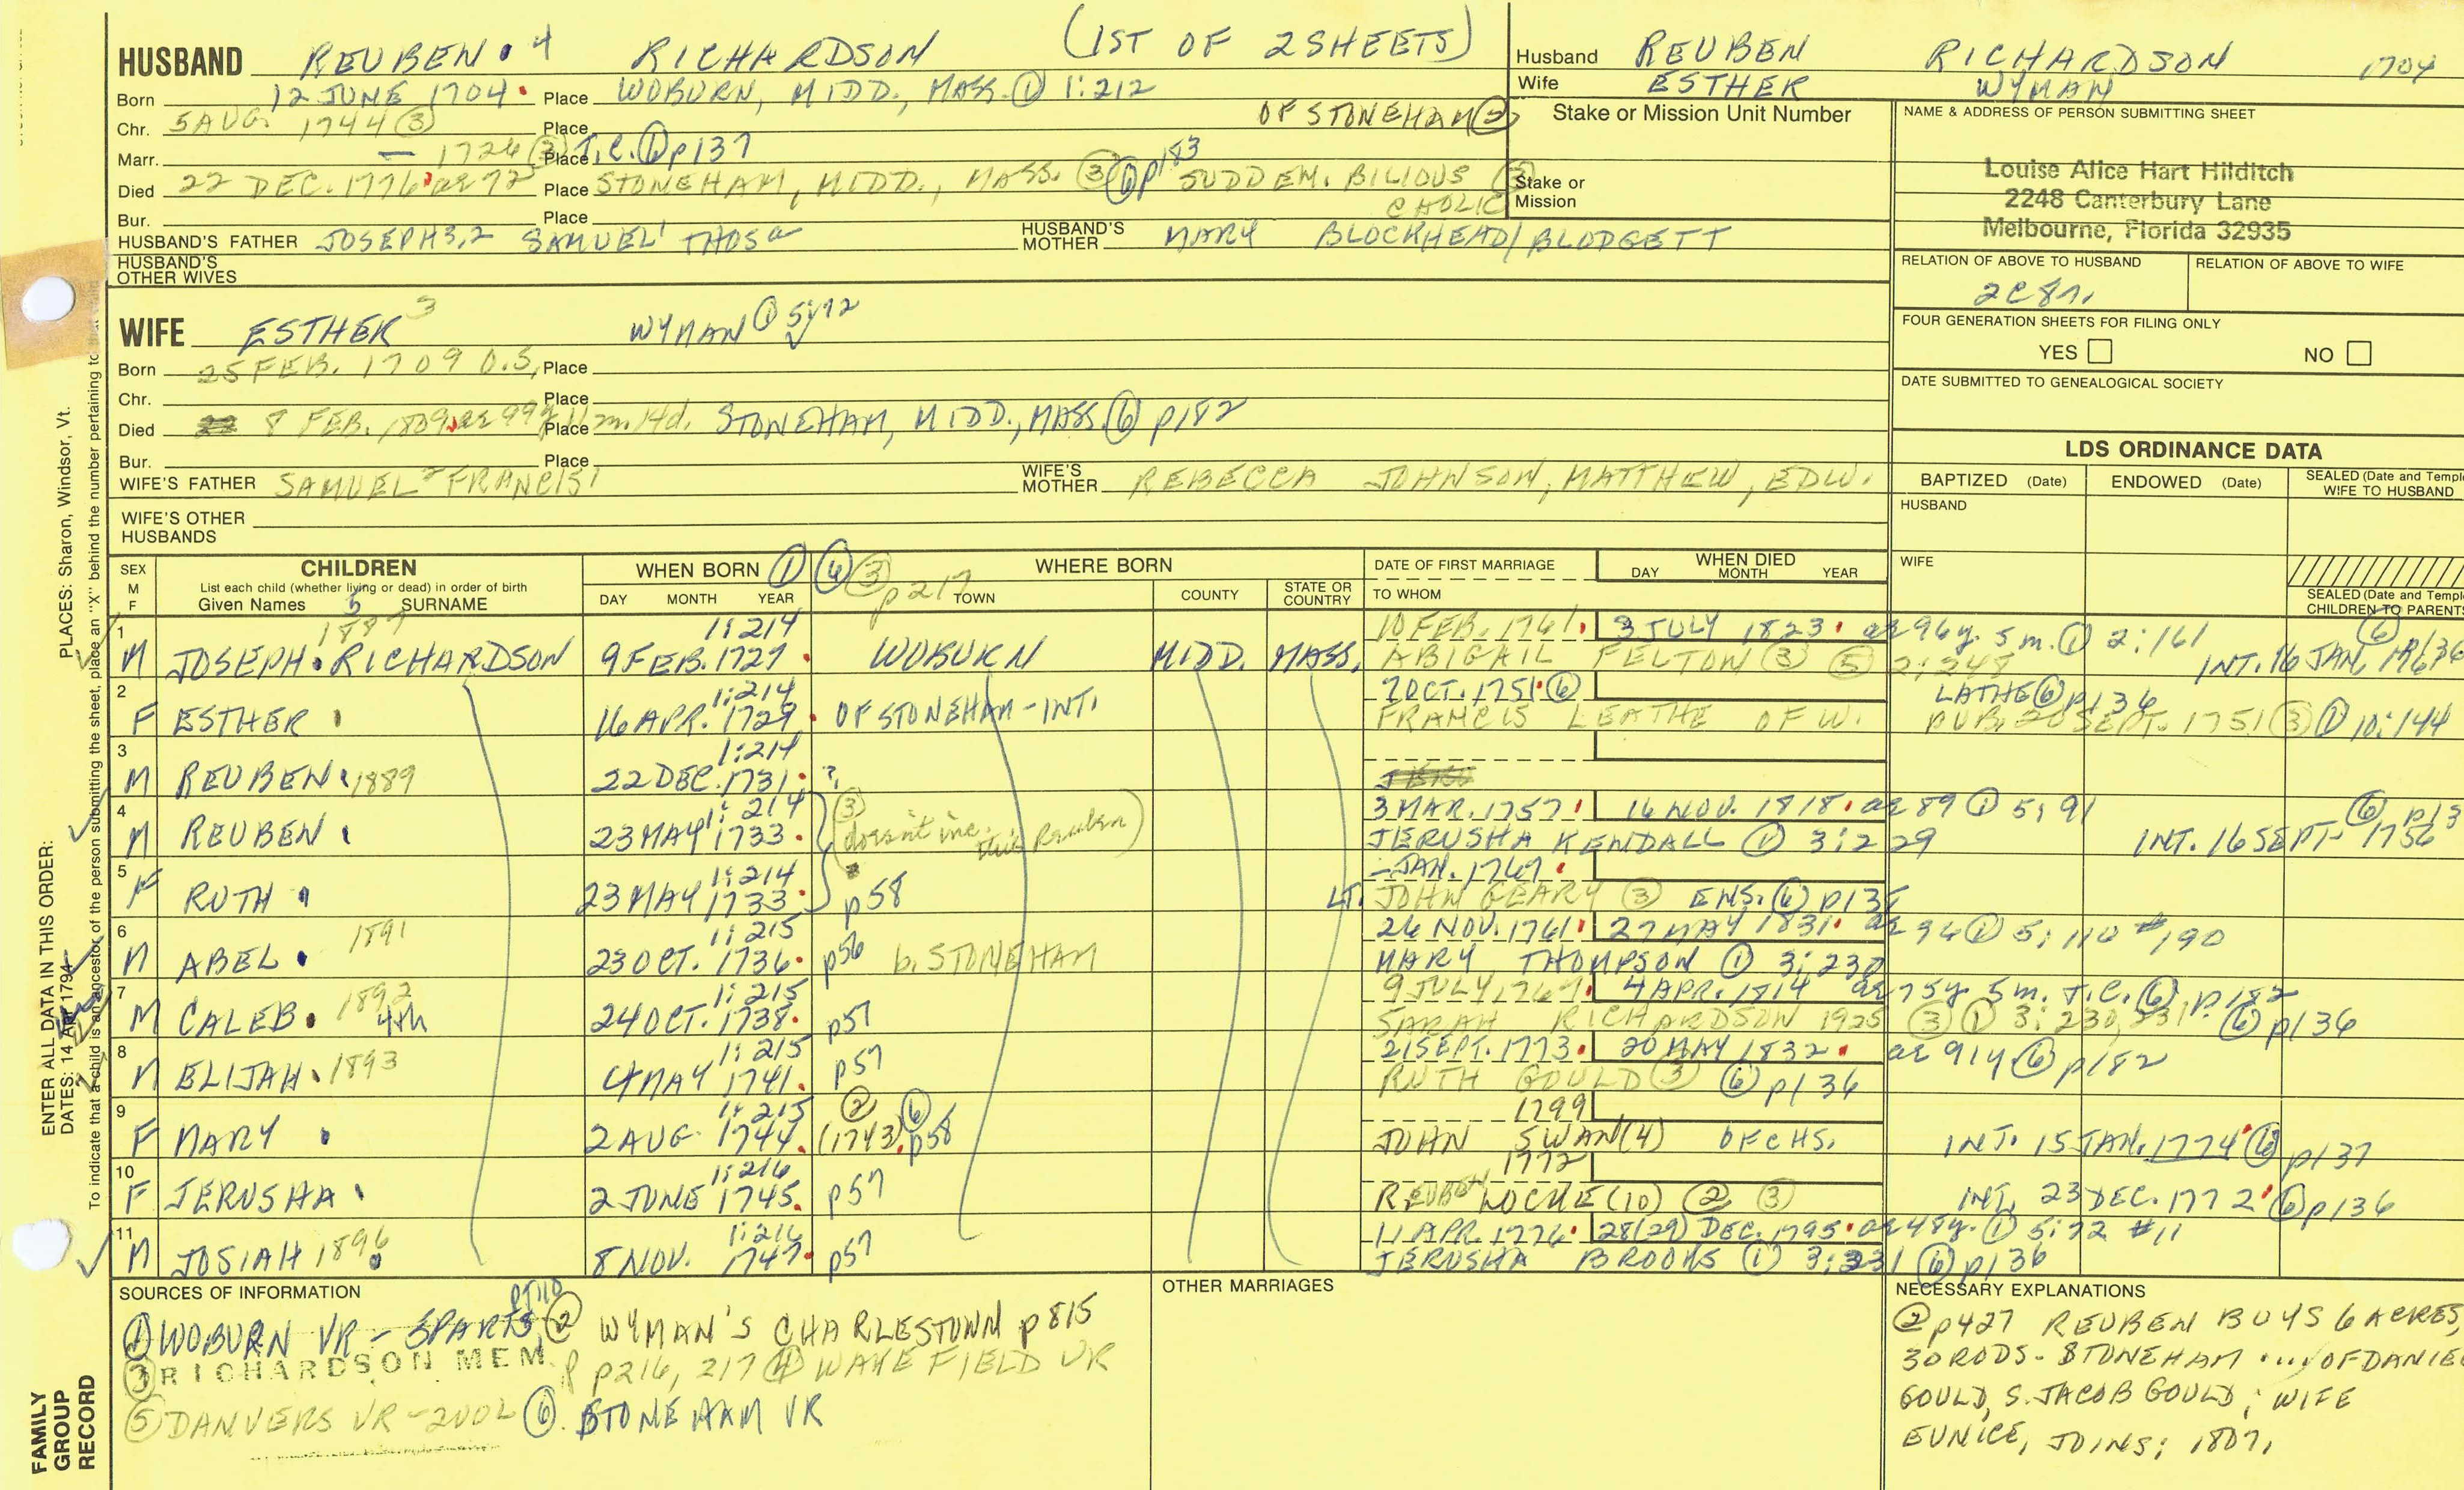 (1ST OF 2 SHEETS)
HUSBAND REUBEN 4 RICHARDSON
Born 12 JUNE 1704. Place WOBURN, MIDD., MASS. ① 1:212
OF STONEHAM
Chr. 5 AUG. 1744 ③ Place
Marr. — 1726 ③ Place T.C. ⑥ p137
Died 22 DEC. 1776 ae 72 Place STONEHAM, MIDD., MASS. ③ ⑥ p183 SUDDEN. BILIOUS CHOLIC
Bur. Place
HUSBAND'S FATHER JOSEPH 3,2 SAMUEL1 THOS a HUSBAND'S MOTHER MARY BLOCKHEAD/BLODGETT
HUSBAND'S OTHER WIVES
Husband REUBEN RICHARDSON 1704
Wife ESTHER WYMAN
Stake or Mission Unit Number
Stake or Mission
NAME & ADDRESS OF PERSON SUBMITTING SHEET
Louise Alice Hart Hilditch
2248 Canterbury Lane
Melbourne, Florida 32935
RELATION OF ABOVE TO HUSBAND RELATION OF ABOVE TO WIFE
2C8r.
FOUR GENERATION SHEETS FOR FILING ONLY
YES NO
DATE SUBMITTED TO GENEALOGICAL SOCIETY
WIFE ESTHER 3 WYMAN ①
Born 25 FEB. 1709 O.S. Place
Chr. Place
Died 8 FEB. 1809 ae 99y 11m. 14d. Place STONEHAM, MIDD., MASS. ⑥ p182
Bur. Place
WIFE'S FATHER SAMUEL2 FRANCIS1 WIFE'S MOTHER REBECCA JOHNSON, MATTHEW, EDW.
WIFE'S OTHER HUSBANDS
LDS ORDINANCE DATA
BAPTIZED (Date) ENDOWED (Date) SEALED (Date and Templ
WIFE TO HUSBAND
HUSBAND
WIFE
SEALED (Date and Templ
CHILDREN TO PARENTS
SEX M F
CHILDREN
List each child (whether living or dead) in order of birth
Given Names 5 SURNAME
WHEN BORN ① ⑥ ③ p217
DAY MONTH YEAR
WHERE BORN
TOWN COUNTY STATE OR COUNTRY
DATE OF FIRST MARRIAGE
TO WHOM
WHEN DIED
DAY MONTH YEAR
1 1887 1:214 10 FEB. 1761. 3 JULY 1823. ae 96y. 5m. ① 2:161 ⑥
M JOSEPH. RICHARDSON 9 FEB. 1727. WOBURN MIDD. MASS. ABIGAIL FELTON ③ ⑤ 2:248 INT. 16 JAN.
2 1:214 7 OCT. 1751. ⑥ LATHE ⑥ p136
F ESTHER 16 APR. 1729. OF STONEHAM - INT. FRANCIS LEATHE OF W. PUB. 20 SEPT. 1751 ③ ① 10:144
3 1:214
M REUBEN. 1889 22 DEC. 1731. ?
4 1:214 3 MAR. 1757. 16 NOV. 1818. ae 89 ① 5:91 ⑥ p13
M REUBEN. 23 MAY 1733. (③ doesn't inc. this Reuben) JERUSHA KENDALL ① 3:229 INT. 16 SEPT. 1756
5 1:214 — JAN. 1767.
F RUTH. 23 MAY 1733. p58 LT. JOHN GEARY ③ ENS. ⑥ p135
6 1891 1:215 26 NOV. 1761. 27 MAY 1831. ae 94 ① 5:110 #190
M ABEL. 23 OCT. 1736. p56 b. STONEHAM MARY THOMPSON ① 3:230
7 1892 1:215 9 JULY 1767. 4 APR. 1814 ae 75y. 5m. T.C. ⑥ p182
M CALEB. 4th 24 OCT. 1738. p57 SARAH RICHARDSON 1925 ③ ① 3:230, 231 ⑥ p136
8 1:215 21 SEPT. 1773. 20 MAY 1832. ae 91y ⑥ p182
M ELIJAH. 1893 4 MAY 1741. p57 RUTH GOULD ③ ⑥ p136
9 1:215 ② ⑥ 1799
F MARY. 2 AUG. 1744. (1743). p58 JOHN SWAN (4) OF CHS. INT. 15 JAN. 1774 ⑥ p137
10 1:216 1772
F JERUSHA. 2 JUNE 1745. p57 REUBEN LOCKE (10) ② ③ INT. 23 DEC. 1772 ⑥ p136
11 1:216 11 APR. 1776. 28(29) DEC. 1795. ae 48y. ① 5:72 #11
M JOSIAH 1896 8 NOV. 1747. p57 JERUSHA BROOKS ① 3:231 ⑥ p136
SOURCES OF INFORMATION
① WOBURN VR - 3 PARTS ② WYMAN'S CHARLESTOWN p815
③ RICHARDSON MEM. p216, 217 ④ WAKEFIELD VR
⑤ DANVERS VR - 2 VOL ⑥ STONEHAM VR
OTHER MARRIAGES
NECESSARY EXPLANATIONS
② p427 REUBEN BUYS 6 ACRES,
30 RODS - STONEHAM ... OF DANIE
GOULD, S. JACOB GOULD; WIFE
EUNICE, JOINS; 1807.
PLACES: Sharon, Windsor, Vt.
To indicate that a child is an ancestor of the person submitting the sheet, place an "X" behind the number pertaining to that
ENTER ALL DATA IN THIS ORDER:
DATES: 14 Apr 1794
FAMILY GROUP RECORD